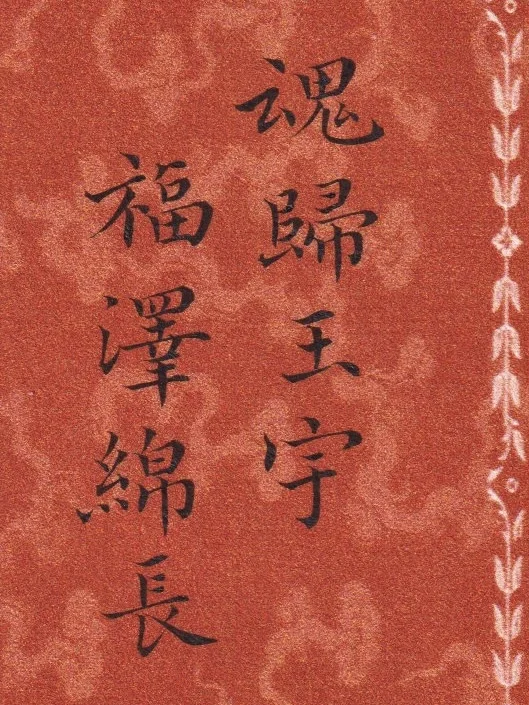 魂歸玉宇
福澤綿長